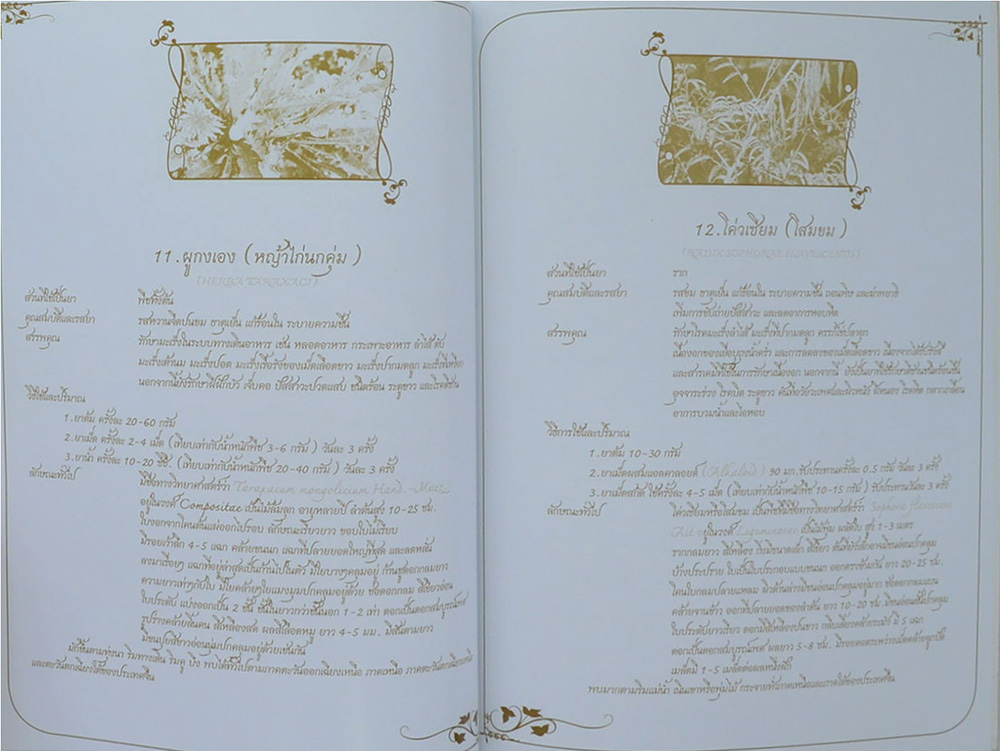 11.ผูกงเอง (หญ้าไก่นกคุ่ม )
(HERBA TARAXACI)
ส่วนที่ใช้เป็นยา พืชทั้งต้น
คุณสมบัติและรสยา รสหวานจืดปนขม ธาตุเย็น แก้ร้อนใน ระบายความชื้น
สรรพคุณ รักษามะเร็งในระบบทางเดินอาหาร เช่น หลอดอาหาร กระเพาะอาหาร ลำไส้ ตับ
มะเร็งเต้านม มะเร็งปอด มะเร็งเรื้อรังของเม็ดเลือดขาว มะเร็งปากมดลูก
นอกจากนี้ยังรักษาฝีฝักบัว เจ็บคอ ปัสสาวะปวดแสบ ระดูขาว
วิธีใช้และปริมาณ
1.ยาต้ม ครั้งละ 20-60 กรัม
2.ยาเม็ด ครั้งละ 2-4 เม็ด (เทียบเท่ากับน้ำหนักพืช 3-6 กรัม ) วันละ 3 ครั้ง
3.ยาน้ำ ครั้งละ 10-20 ซีซี. (เทียบเท่ากับน้ำหนักพืช 20-40 กรัม ) วันละ 3 ครั้ง
ลักษณะทั่วไป มีชื่อทางวิทยาศาสตร์ว่า Taraxacum mongolicium Hand.-Mazz
อยู่ในวงศ์ Compositae เป็นไม้ล้มลุก อายุหลายปี ลำต้นสูง 10-25 ซม.
ใบงอกจากโคนต้นแผ่ออกไปรอบ ลักษณะเรียวยาว ขอบใบไม่เรียบ
มีรอยเว้าลึก 4-5 แฉก คล้ายขนนก แฉกที่ปลายยอดใหญ่ที่สุด และลดหลั่น
ลงมาเรื่อยๆ แฉกที่อยู่ล่าสุดเป็นก้านใบในตัว มีใยบางๆคลุมอยู่ ก้านชูดอกกลมยาว
ความยาวเท่าๆกับใบ มีใยคล้ายใยแมงมุมปกคลุมอยู่ด้วย ช่อดอกกลม สีเขียวอ่อน
ใบประดับ แบ่งออกเป็น 2 ชั้น ชั้นในยาวกว่าชั้นนอก 1-2 เท่า ดอกเป็นดอกสมบูรณ์เพศ
รูปร่างคล้ายลิ้นคน สีเหลืองสด ผลสีเลือดหมู ยาว 4-5 มม. มีสันตามยาว
มีขนปุยสีขาวอ่อนนุ่มปกคลุมอยู่ด้วยเช่นกัน
มักขึ้นตามทุ่งนา ริมทางเดิน ริมคู บึง พบได้ทั่วไปตามภาคตะวันออกเฉียงเหนือ ภาคเหนือ ภาคตะวันตกเฉียงเหนือ
และตะวันตกเฉียงใต้ของประเทศจีน
12.โค่วเซียม (โสมขม )
(RADIX SOPHORAE FLAVESCENTIS)
ส่วนที่ใช้เป็นยา ราก
คุณสมบัติและรสยา รสขม ธาตุเย็น แก้ร้อนใน ระบายความชื้น ถอนพิษ และฆ่าพยาธิ
เพิ่มการขับถ่ายปัสสาวะ และลดอาการหอบหืด
สรรพคุณ รักษาโรคมะเร็งลำไส้ มะเร็งที่ปากมดลูก
เนื้องอกของเยื่อบุถุงน้ำคร่ำ และการลดลงของเม็ดเลือดขาว เนื่องจากได้รับรังสี
และสารเคมีที่ใช้ในการรักษาเนื้องอก นอกจากนี้
อุจจาระร่วง โรคบิด ระดูขาว คันที่อวัยวะเพศและผิวหนัง ฝีหนอง โรคหิด กลากเกลื้อน
อาการบวมน้ำและไอหอบ
วิธีการใช้และปริมาณ
1.ยาต้ม 10-30 กรัม
2.ยาเม็ดผสมแอลคาลอยด์ (Alkaloid) 90 มก.รับประทานครั้งละ 0.5 กรัม วันละ 3 ครั้ง
3.ยาเม็ดสกัด ใช้ครั้งละ 4-5 เม็ด (เทียบเท่ากับน้ำหนักพืช 10-15 กรัม ) รับประทานวันละ 3 ครั้ง
ลักษณะทั่วไป โค่วเซียมหรือโสมขม เป็นพืชที่มีชื่อทางวิทยาศาสตร์ว่า Sophora flavescens
Ait อยู่ในวงศ์ Leguminosae เป็นไม้พุ่ม ผลัดใบ สูง 1-3 เมตร
รากกลมยาว สีเหลือง กิ่งมีขนาดเล็ก สีเขียว ต้นที่ยังเล็กอาจมีขนอ่อนปกคลุม
บ้างประปราย ใบเป็นใบประกอบแบบขนนก ออกตรงข้ามกัน ยาว 20-25 ซม.
โคนใบกลมปลายแหลม ผิวด้านล่างมีขนอ่อนปกคลุมอยู่มาก ช่อดอกกลมแบน
คล้ายจานข้าว ออกที่ปลายยอดของลำต้น ยาว 10-20 ซม.มีขนอ่อนสั้นปกคลุม
ใบประดับยาวเรียว ดอกมีสีเหลืองปนขาว มี 5 แฉก
ดอกเป็นดอกสมบูรณ์เพศ ผลยาว 5-8 ซม.
เมล็ดมี 1-5 เมล็ดต่อผลหนึ่งฝัก
พบมากตามริมแม่น้ำ เนินเขาหรือพุ่มไม้ กระจายทั่วภาคเหนือและภาคใต้ของประเทศจีน